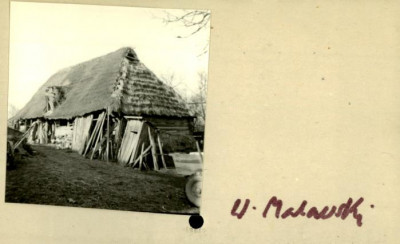 W. Malawski